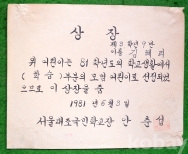 상 장
제 3 학년 9 반
이름 김 해 리
위 어린이는 81 학년도의 학교생활에서
( 학 습 ) 부분의 모범 어린이로 선정되었
으므로 이 상장을 줌
1981 년 6 월 3 일
서울 국민학교장 안 춘 섭